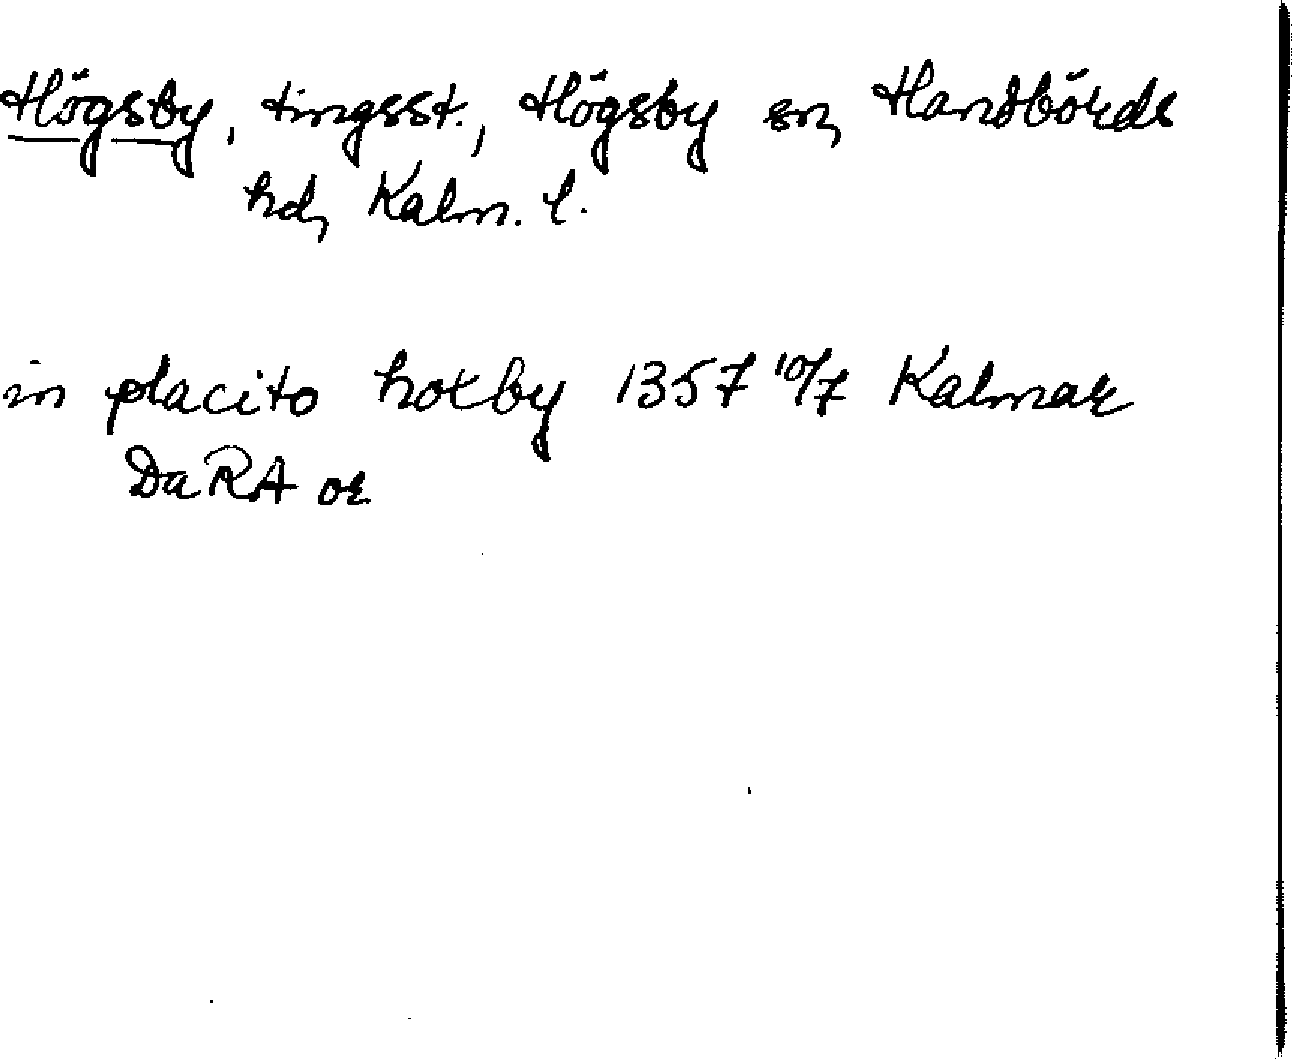 Högsby, tingsst., Högsby sn, Handbörds
hd, Kalm. l.
in placito horby 1357 10/7 Kalmar
DaRA or